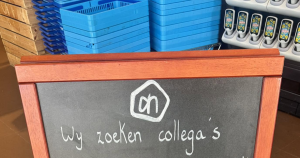 ah
Wy zoeken collega's